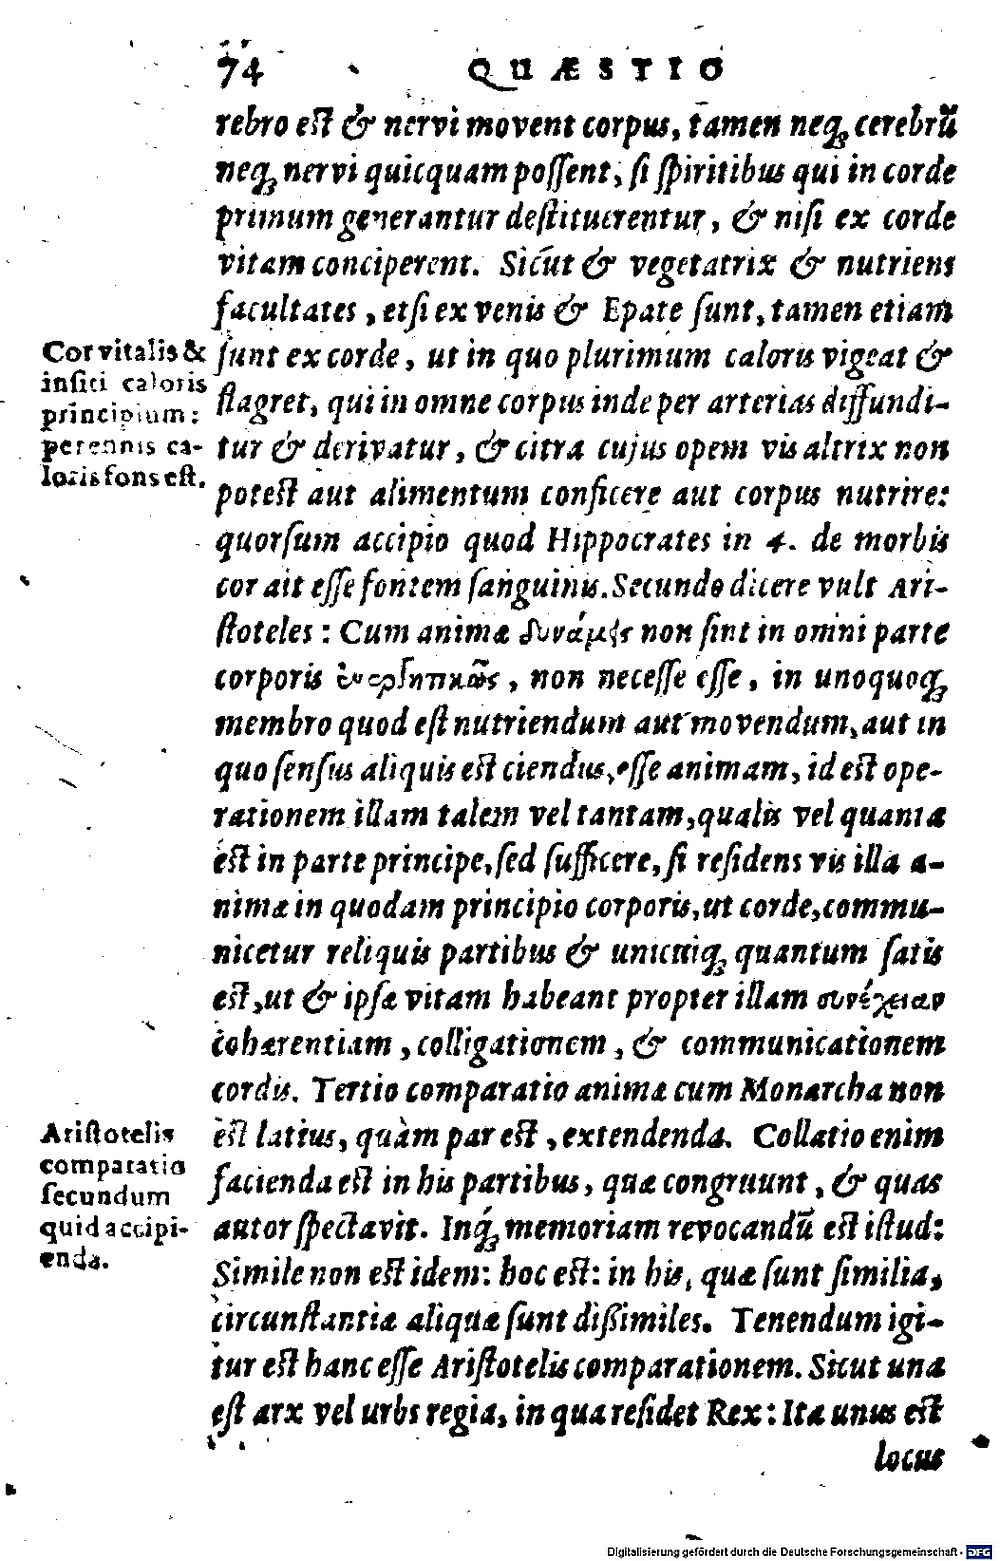 74 QUÆSTIO
rebro est & nervi movent corpus, tamen neq; cerebrũ
neq; nervi quicquam possent, si spiritibus qui in corde
primum generantur destituerentur, & nisi ex corde
vitam conciperent. Sicut & vegetatrix & nutriens
facultates, etsi ex venis & Epate sunt, tamen etiam
sunt ex corde, ut in quo plurimum caloris vigeat &
flagret, qui in omne corpus inde per arterias diffundi-
tur & derivatur, & citra cujus opem vis altrix non
potest aut alimentum conficere aut corpus nutrire:
quorsum accipio quod Hippocrates in 4. de morbis
cor ait esse fontem sanguinis. Secundo dicere vult Ari-
stoteles: Cum animæ δυνάμεις non sint in omni parte
corporis, non necesse esse, in unoquoq;
membro quod est nutriendum aut movendum, aut in
quo sensus aliquis est ciendus, esse animam, id est ope-
rationem illam talem vel tantam, qualis vel quanta
est in parte principe, sed sufficere, si residens vis illa a-
nimæ in quodam principio corporis, ut corde, commu-
nicetur reliquis partibus & unicuiq; quantum satis
est, ut & ipsæ vitam habeant propter illam συνέχειαν
cohærentiam, colligationem, & communicationem
cordis. Tertio comparatio animæ cum Monarcha non
est latius, quàm par est, extendenda. Collatio enim
facienda est in his partibus, quæ congruunt, & quas
autor spectavit. Inq́; memoriam revocandũ est istud:
Simile non est idem: hoc est: in his, quæ sunt similia,
circunstantiæ aliquæ sunt dißimiles. Tenendum igi-
tur est hanc esse Aristotelis comparationem. Sicut una
est arx vel urbs regia, in qua residet Rex: Ita unus est
locus
Cor vitalis &
insiti caloris
principium:
perennis ca-
loris fons est.
Aristotelis
comparatio
secundum
quid accipi-
enda.
Digitalisierung gefördert durch die Deutsche Forschungsgemeinschaft - DFG